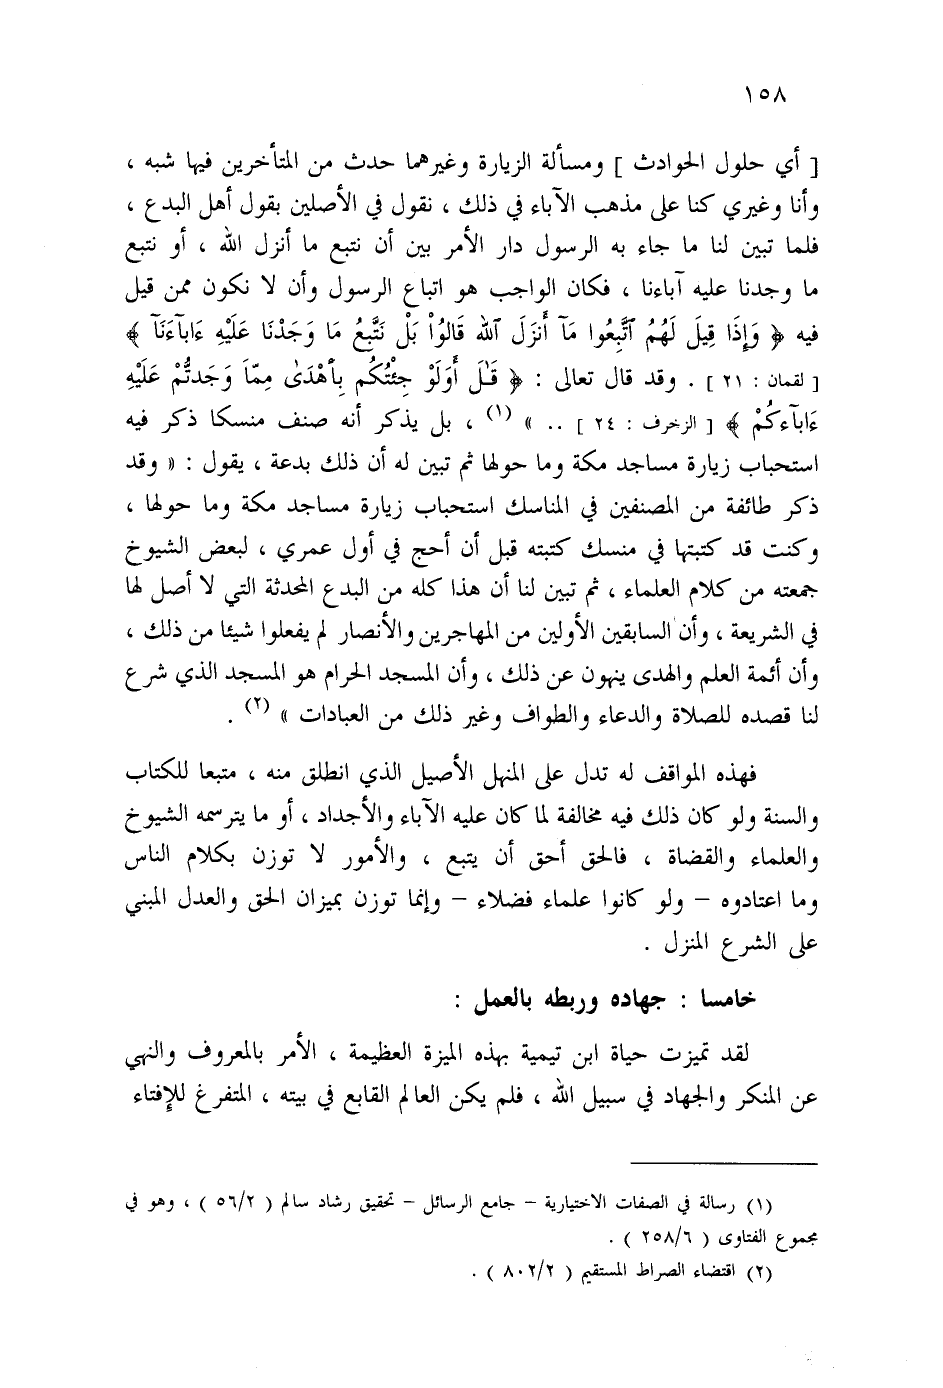 ١٥٨
[ أي حلول الحوادث ] ومسألة الزيارة وغيرهما حدث من المتأخرين فيها شبه ،
وأنا وغيري كنا على مذهب الآباء في ذلك ، نقول في الأصلين بقول أهل البدع ،
فلما تبين لنا ما جاء به الرسول دار الأمر بين أن نتبع ما أنزل الله ، أو نتبع
ما وجدنا عليه آباءنا ، فكان الواجب هو اتباع الرسول وأن لا نكون ممن قيل
فيه ﴿ وَإِذَا قِيلَ لَهُمُ ٱتَّبِعُوا مَآ أَنزَلَ ٱللَّه قَالُواْ بَلْ نَتَّبِعُ مَا وَجَدْنَا عَلَيْهِ ءَابآءَنَآ ﴾
[ لقمان : ٢١ ] . وقد قال تعالى : ﴿ قَٰلَ أَوَلَوْ جِئْتُكُم بِأَهْدَىٰ مِمَّا وَجَدتُّمْ عَلَيْهِ
ءَابآءكُمْ ﴾ [ الزخرف : ٢٤ ] .. » (١) ، بل يذكر أنه صنف منسكا ذكر فيه
استحباب زيارة مساجد مكة وما حولها ثم تبين له أن ذلك بدعة ، يقول : « وقد
ذكر طائفة من المصنفين في المناسك استحباب زيارة مساجد مكة وما حولها ،
وكنت قد كتبتها في منسك كتبته قبل أن أحج في أول عمري ، لبعض الشيوخ
جمعته من كلام العلماء ، ثم تبين لنا أن هذا كله من البدع المحدثة التي لا أصل لها
في الشريعة ، وأن السابقين الأولين من المهاجرين والأنصار لم يفعلوا شيئا من ذلك ،
وأن أئمة العلم والهدى ينهون عن ذلك ، وأن المسجد الحرام هو المسجد الذي شرع
لنا قصده للصلاة والدعاء والطواف وغير ذلك من العبادات » (٢) .
فهذه المواقف له تدل على المنهل الأصيل الذي انطلق منه ، متبعا للكتاب
والسنة ولو كان ذلك فيه مخالفة لما كان عليه الآباء والأجداد ، أو ما يترسمه الشيوخ
والعلماء والقضاة ، فالحق أحق أن يتبع ، والأمور لا توزن بكلام الناس
وما اعتادوه – ولو كانوا علماء فضلاء – وإنما توزن بميزان الحق والعدل المبني
على الشرع المنزل .
خامسا : جهاده وربطه بالعمل :
لقد تميزت حياة ابن تيمية بهذه الميزة العظيمة ، الأمر بالمعروف والنهي
عن المنكر والجهاد في سبيل الله ، فلم يكن العالم القابع في بيته ، المتفرغ للإفتاء
(١) رسالة في الصفات الاختيارية – جامع الرسائل – تحقيق رشاد سالم ( ٥٦/٢ ) ، وهو في
مجموع الفتاوى ( ٢٥٨/٦ ) .
(٢) اقتضاء الصراط المستقيم ( ٨٠٢/٢ ) .